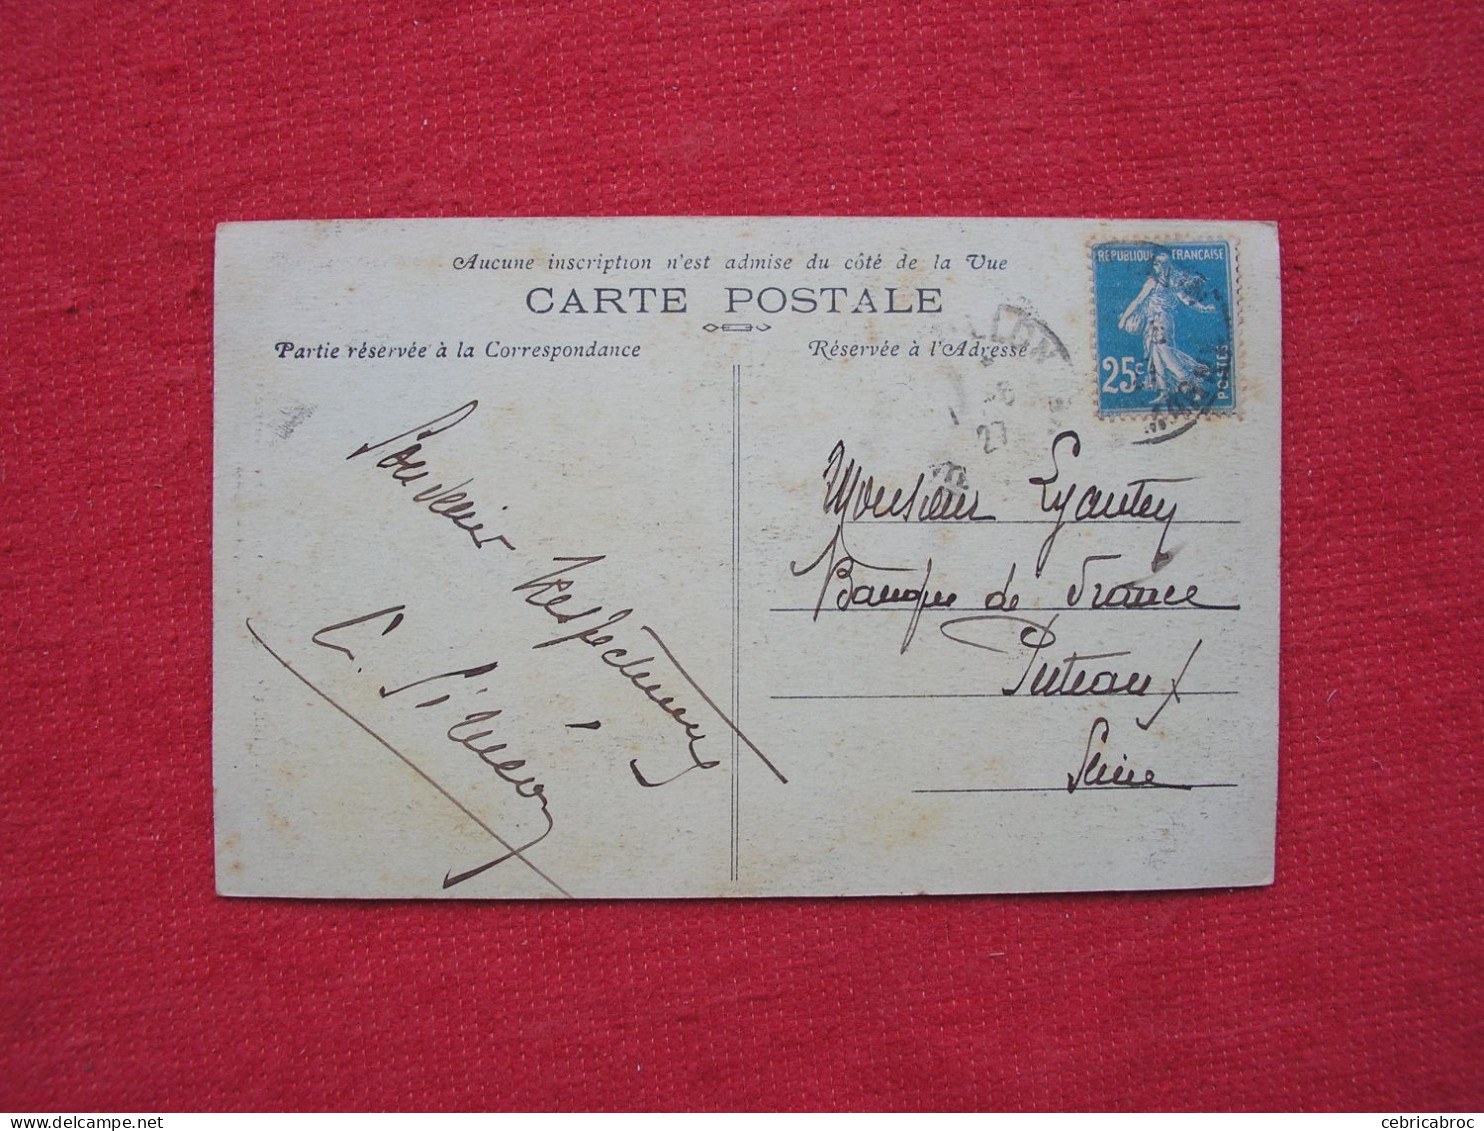 Aucune inscription n'est admise du côté de la Vue
CARTE POSTALE
Partie réservée à la Correspondance
Réservée à l'Adresse
REPUBLIQUE FRANÇAISE
25c
POSTES
27
Souvenir respectueux
C. Siméon
Monsieur Lyautey
Banque de France
Puteaux
Seine
cebricabroc